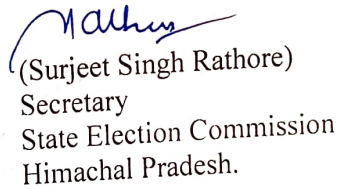 (Surjeet Singh Rathore)
Secretary
State Election Commission
Himachal Pradesh.